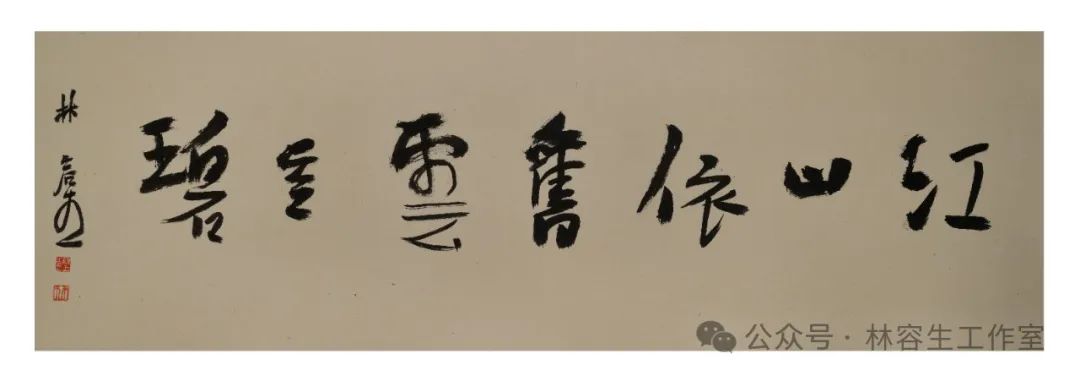 江山依舊雲空碧
林容生
公众号·林容生工作室